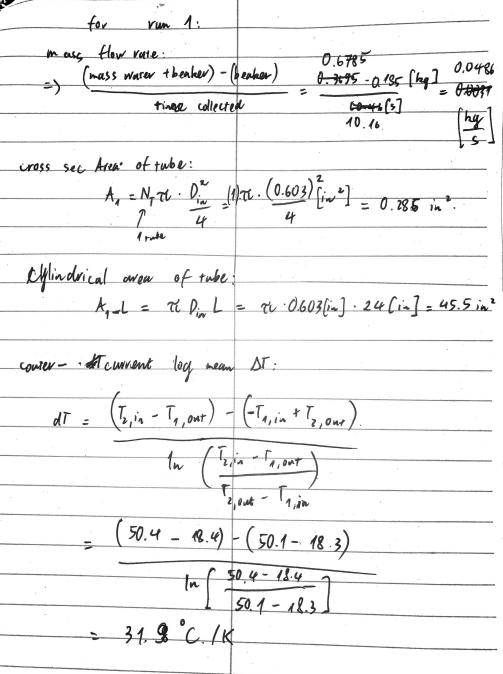 for run 1:
mass flow rate:
=> (mass water + beaker) - (beaker) / time collected = 0.6785 - 0.185 [kg] / 10.16 [s] = 0.0486 [kg/s]
cross sec Area of tube:
A₁ = N_T π · D_in² / 4 = (1) π · (0.603)² / 4 [in²] = 0.285 in².
↑
1 tube
Cylindrical area of tube:
A_1-L = π D_in L = π · 0.603 [in] · 24 [in] = 45.5 in²
couter - current log mean ΔT:
dT = (T₂,in - T₁,out) - (-T₁,in + T₂,out) / ln (T₂,in - T₁,out / T₂,out - T₁,in)
= (50.4 - 18.4) - (50.1 - 18.3) / ln [50.4 - 18.4 / 50.1 - 18.3]
= 31.9 °C / K